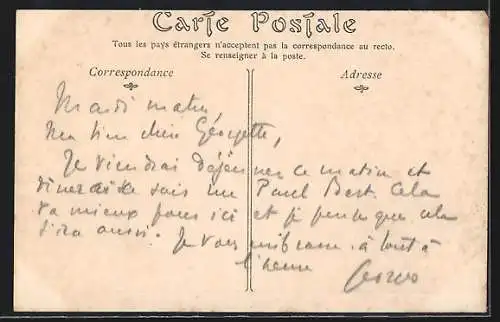 Carte Postale
Tous les pays étrangers n'acceptent pas la correspondance au recto.
Se renseigner à la poste.
Correspondance
Adresse
Mardi matin
Ma bien chère Georgette,
Je viendrai déjeuner ce matin et
dinerai ce soir Paul Bert. Cela
va mieux pour ici et je pense que cela
ira aussi. Je vous embrasse. à tout à
l'heure